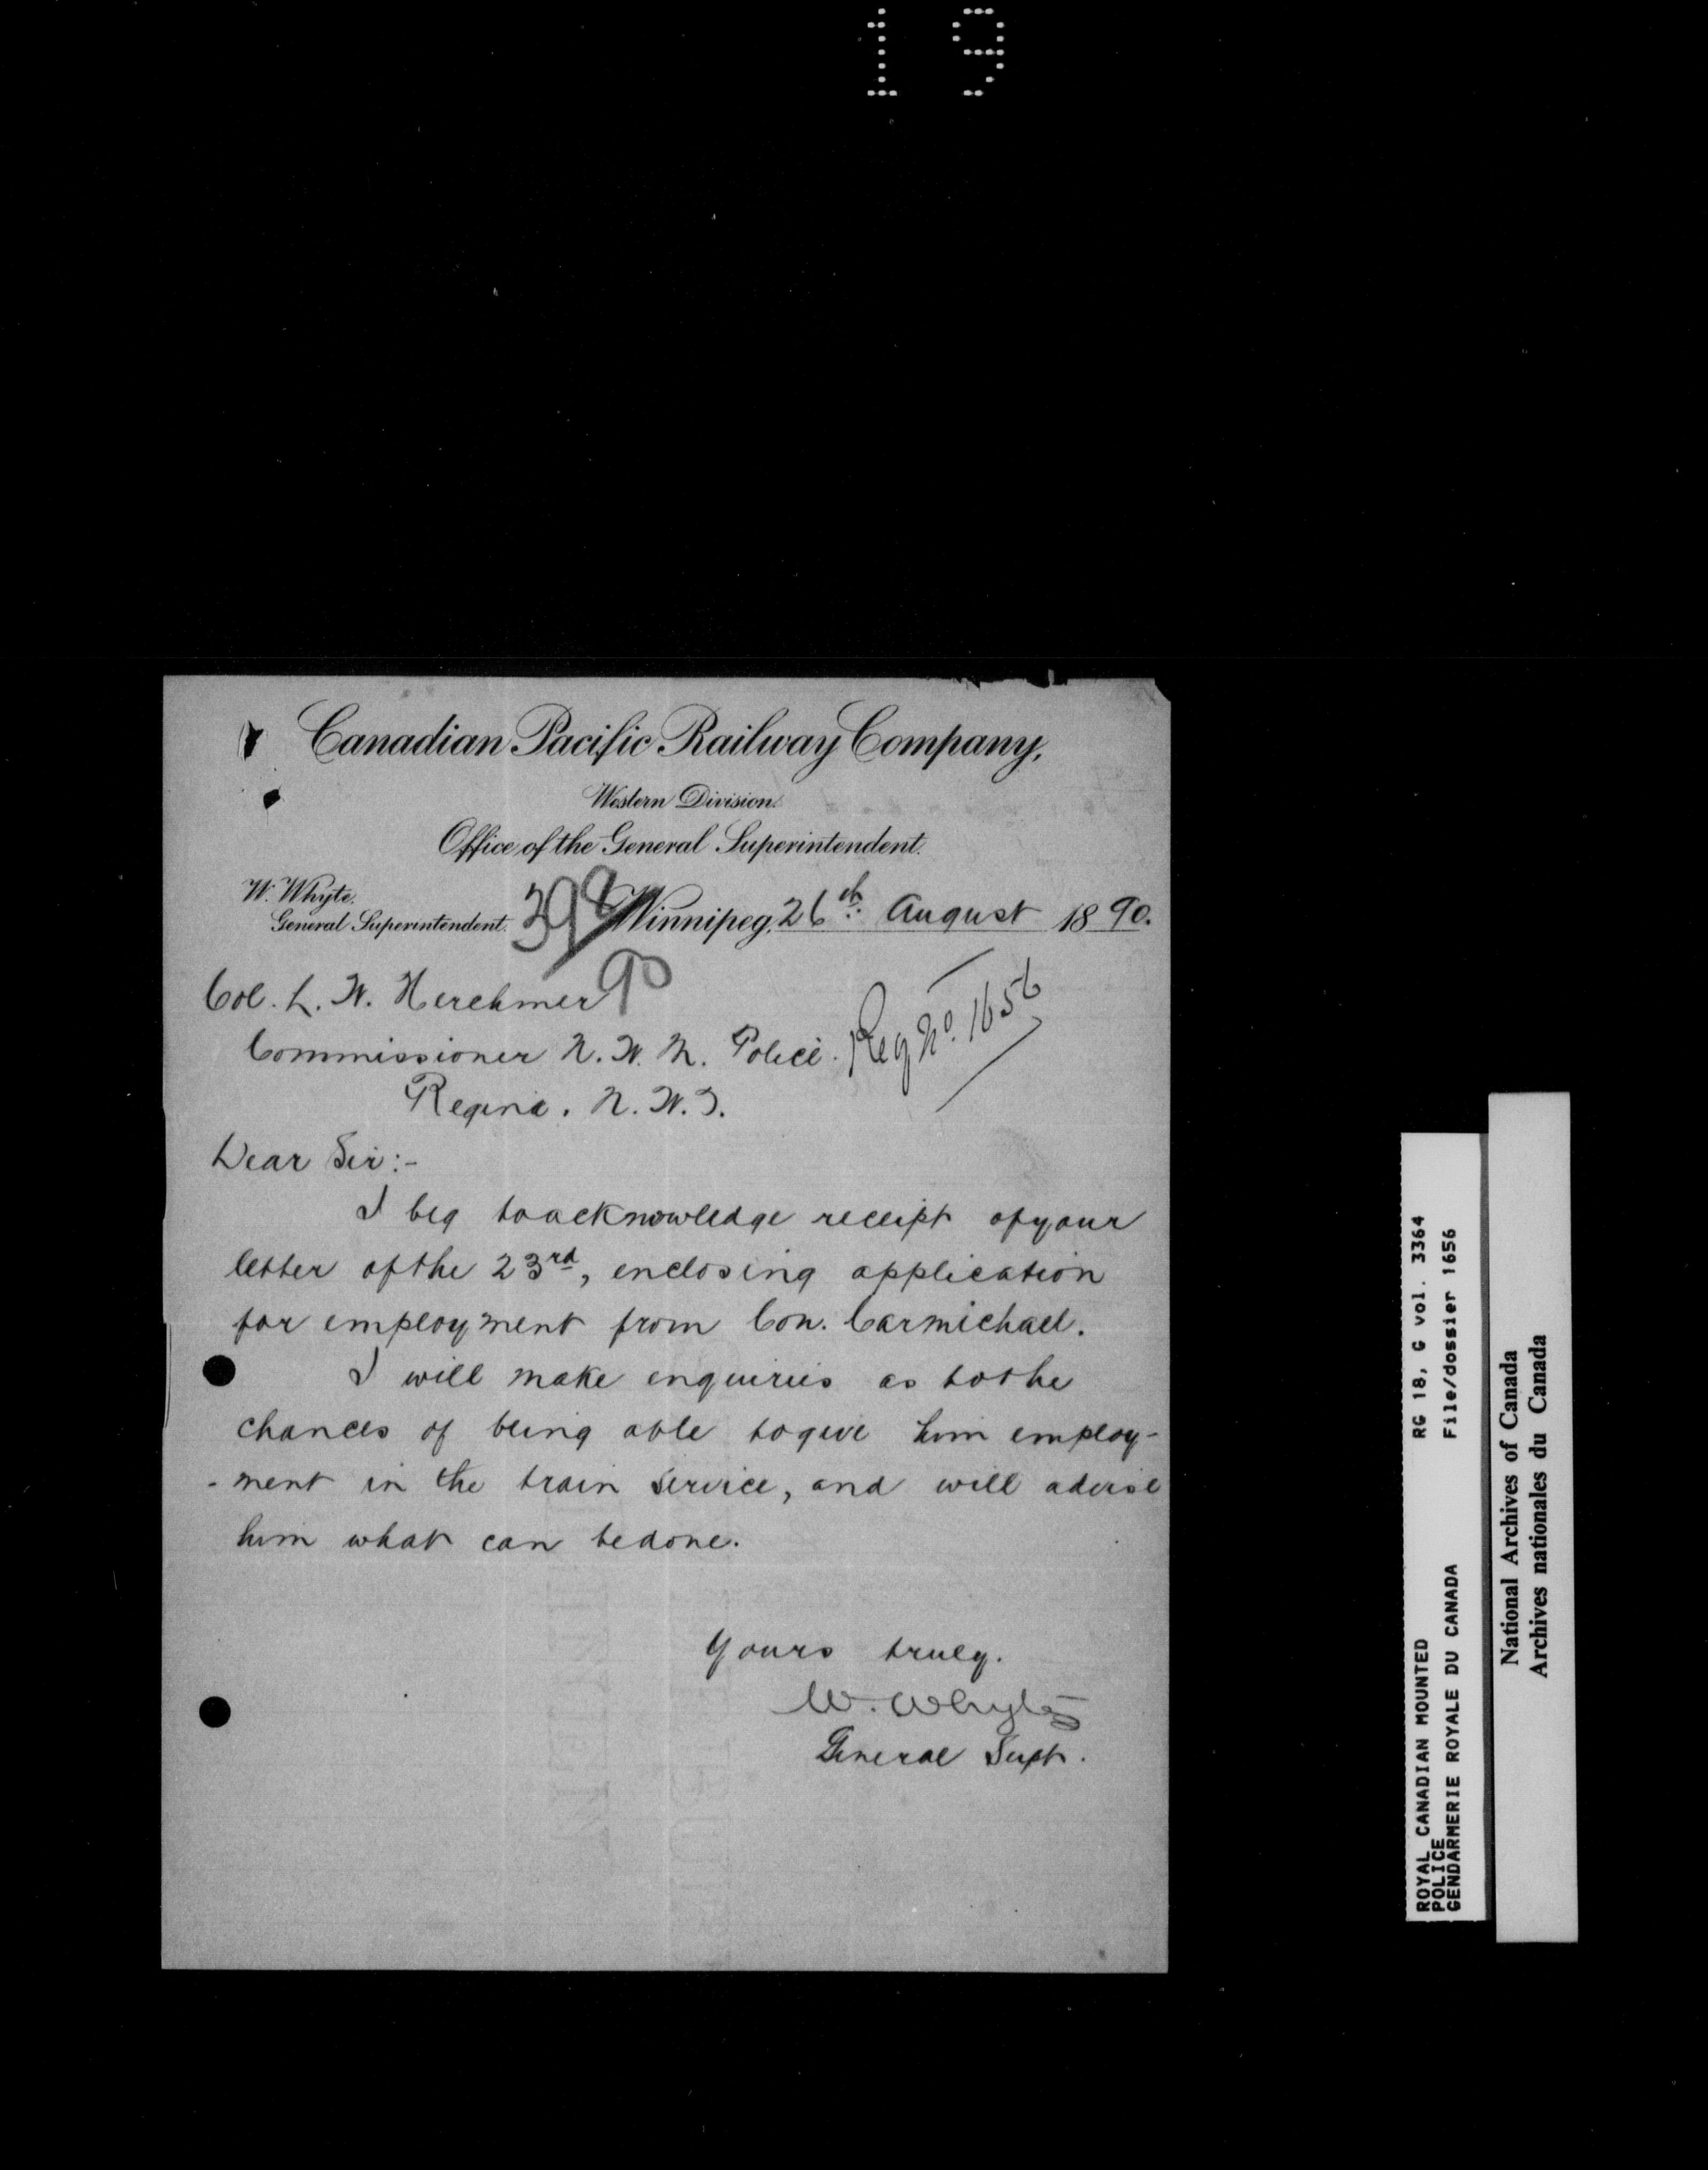 19
Canadian Pacific Railway Company,
Western Division.
Office of the General Superintendent.
W. Whyte.
General Superintendent.
Winnipeg, 26th August 1890.
90
Col. L. W. Herchmer
Commissioner N. W. M. Police.
Reg No. 1656
Regina. N. W. T.
Dear Sir:-
I beg to acknowledge receipt of your
letter of the 23rd, enclosing application
for employment from Con. Carmichael.
I will make enquiries as to the
chances of being able to give him employ-
-ment in the train service, and will advise
him what can be done.
Yours truly.
W. Whyte
General Supt.
ROYAL CANADIAN MOUNTED
POLICE
GENDARMERIE ROYALE DU CANADA
RG 18, G vol. 3364
File/dossier 1656
National Archives of Canada
Archives nationales du Canada